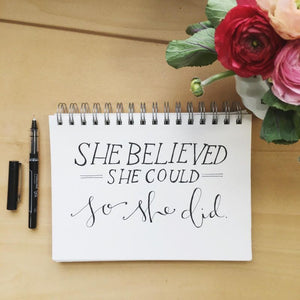 SHE BELIEVED
SHE COULD
so she did.